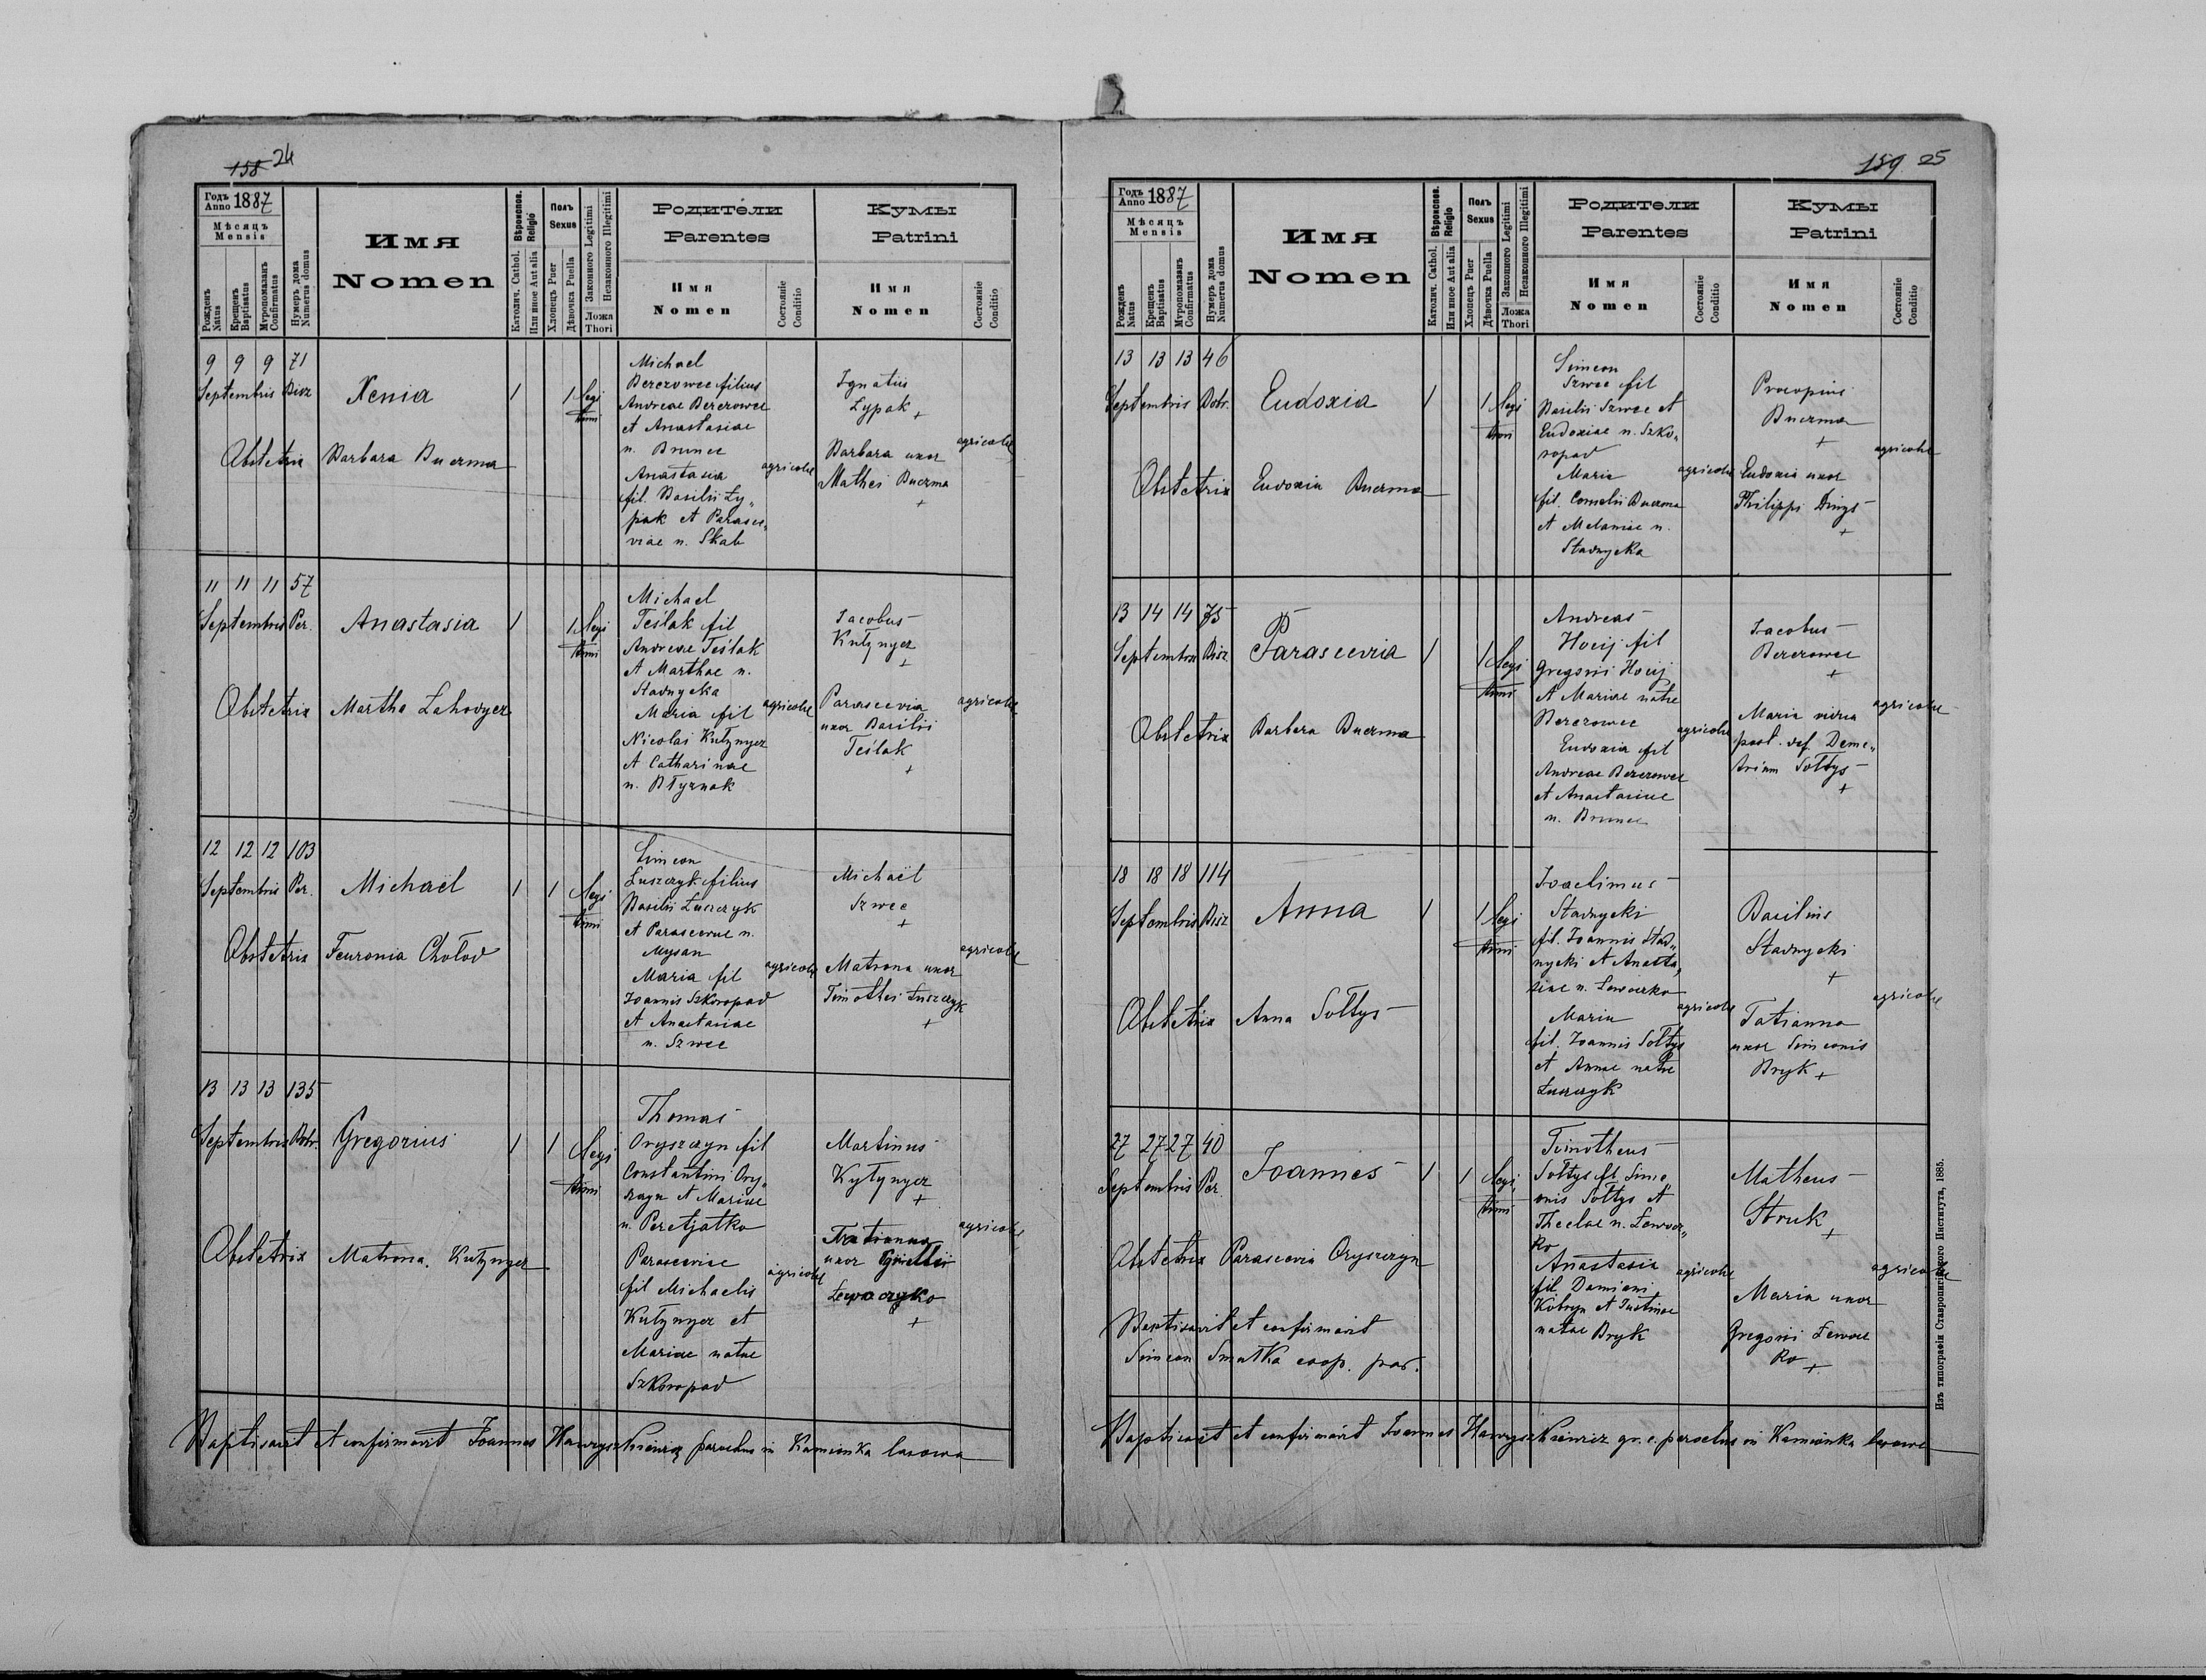 158 24
Годъ Anno 1887
Мѣсяцъ
Mensis
Рожденъ Natus
Крещенъ Baptisatus
Муропомазанъ Confirmatus
Нумеръ дома Numerus domus
Имя
Nomen
Вѣроиспов. Religio
Католич. Cathol.
Или иное Aut alia
Полъ
Sexus
Хлопецъ Puer
Дѣвочка Puella
Законного Legitimi
Незаконного Illegitimi
Ложа
Thori
Родители
Parentes
Имя
Nomen
Состояніе
Conditio
Кумы
Patrini
Имя
Nomen
Состояніе
Conditio
9 9 9 71
Septembris Bisz
Xenia
1 1 legi
timi
Obstetrix Barbara Buczma
Michael
Berezowec filius
Andreae Berezowec
et Anastasiae
n. Brunec
Anastasia
fil. Basilii Ły„
pak et Parasce„
viae n. Skab
agricolae
Ignatius
Łypak +
Barbara uxor
Mathei Buczma
+
agricolae
11 11 11 57
Septembris Per.
Anastasia
1 1 legi
timi
Obstetrix Martha Zahowyez
Michael
Teślak fil
Andreae Teślak
et Marthae n.
Stadnycka
Maria fil
Nicolai Kułynycz
et Catharinae
n.
agricolae
Jacobus
Kułynycz
+
Parascevia
uxor Basilii
Teślak
+
agricolae
12 12 12 103
Septembris Per.
Michaël
1 1 legi
timi
Obstetrix Feuronia Chołod
Simeon
Łuszczyk filius
Basilii Łuszczyk
et Parasceviae n.
Mysan
Maria fil
Joannis Szkoropad
et Anastasiae
n. Szwec
agricolae
Michaël
Szwec
+
Matrona uxor
Timothei Łuszczyk
+
agricolae
13 13 13 135
Septembris Bobr.
Gregorius
1 1 legi
timi
Obstetrix Matrona Kułynycz
Thomas
Oryszczyn fil
Constantini Ory„
szczyn et Mariae
n. Peretjatko
Parasceviae
fil Michaelis
Kułynycz et
Mariae natae
Szkoropad
agricolae
Martinus
Kyłynycz
+
Tatianna
uxor
Lewoczko
+
agricolae
Baptisavit et confirmavit Joannes Hawryszkiewicz parochus in Kamionka lasowa
159 25
Годъ Anno 1887
Мѣсяцъ
Mensis
Рожденъ Natus
Крещенъ Baptisatus
Муропомазанъ Confirmatus
Нумеръ дома Numerus domus
Имя
Nomen
Вѣроиспов. Religio
Католич. Cathol.
Или иное Aut alia
Полъ
Sexus
Хлопецъ Puer
Дѣвочка Puella
Законного Legitimi
Незаконного Illegitimi
Ложа
Thori
Родители
Parentes
Имя
Nomen
Состояніе
Conditio
Кумы
Patrini
Имя
Nomen
Состояніе
Conditio
13 13 13 46
Septembris Bobr.
Eudoxia
1 1 legi
timi
Obstetrix Eudoxia Buczma
Simeon
Szwec fil
Basilii Szwec et
Eudoxiae n. Szko„
ropad
Maria
fil. Cornelii Buczma
et Melaniae n.
Stadnycka
agricolae
Procopius
Buczma
+
Eudoxia uxor
Philippi Dmys
+
agricolae
13 14 14 75
Septembris Bisz
Parascevia
1 1 legi
timi
Obstetrix Barbara Buczma
Andreas
Hocij fil
Gregorii Hocij
et Mariae natae
Berezowec
Eudoxia fil
Andreae Berezowec
et Anastasiae
n. Brunec
agricolae
Jacobus
Berezowec
+
Maria vidua
post. def. Deme„
trium Sołtys
+
agricolae
18 18 18 114
Septembris Bisz
Anna
1 1 legi
timi
Obstetrix Anna Sołtys
Joachimus
Stadnycki
fil. Joannis Stad„
nycki et Anasta„
siae n. Lewoczko
Maria
fil. Joannis Sołtys
et Annae natae
Łuszczyk
agricolae
Basilius
Stadnycki
+
Tatianna
uxor Simeonis
Bryk +
agricolae
27 27 27 40
Septembris Per.
Joannes
1 1 legi
timi
Obstetrix Parascevia Oryszczyn
Timotheus
Sołtys fil. Sime„
onis Sołtys et
Theclae n. Lewocz„
ko
Anastasia
fil. Damiani
Kobryn et Justinae
natae Bryk
agricolae
Matheus
Struk
+
Maria uxor
Gregorii Lewocz
ko +
agricolae
Baptisavit et confirmavit
Simeon Smulka coop. par.
Baptisavit et confirmavit Joannes Hawryszkiewicz gr. c. parochus in Kamionka lasowa
Изъ типографіи Ставропигійского Института, 1885.